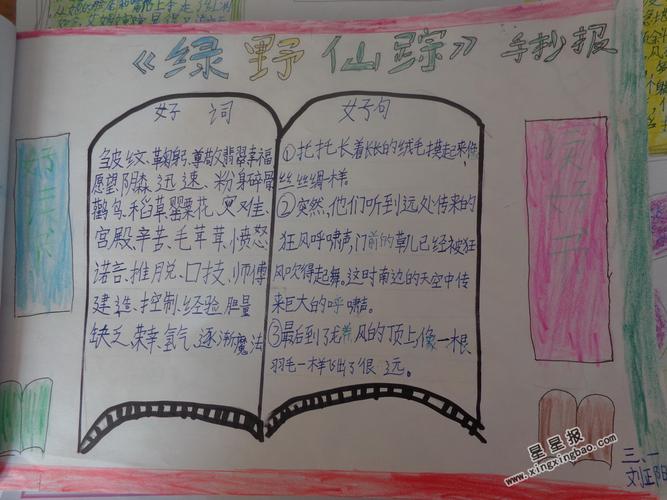 《绿野仙踪》手抄报
好词
皱皮纹、鞠躬、尊敬、翡翠、幸福
愿望、阴森、迅速、粉身碎骨
鹳鸟、稻草、罂粟花、叉难住、
宫殿、辛苦、毛茸茸、愤怒
诺言、推脱、口技、师傅
建造、控制、经验、胆量
缺乏、荣幸、氢气、逐渐、魔法
好句
①托托长着长长的绒毛,摸起来像
丝丝绸一样。
②突然,他们听到远处传来的
狂风呼啸声,门前的草儿已经被狂
风吹得起舞。这时南边的天空中传
来巨大的呼啸声。
③最后到了龙卷风的顶上,像一根
羽毛一样飞出了很远。
好
读
读好书
三、一
刘正阳
星星报
www.xingxingbao.com